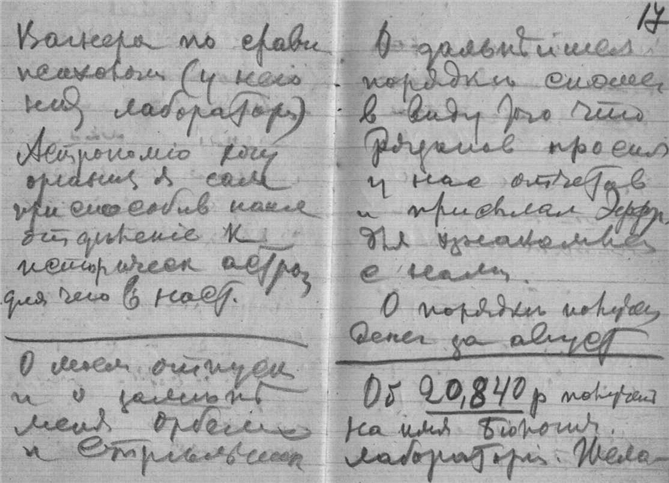 Вагнера по сравн
психологи (у него
нѣт лаборатор)
Астрономію хочу
организ я сам
приспособив наше
отдѣленіе к
историческ астроном
для чего в наст.
О моем отпуск
и о замѣнѣ
меня Орбели
и Стрѣльник
17
О дальнѣйшем
порядкѣ сношен
в виду того что
Рязанов просил
у нас отчетов
и присылал
для ознакомлен
с нами.
О порядкѣ получен
денег за август
Об 20,840 р получен
на имя Біологич.
лаборатори. Жела-